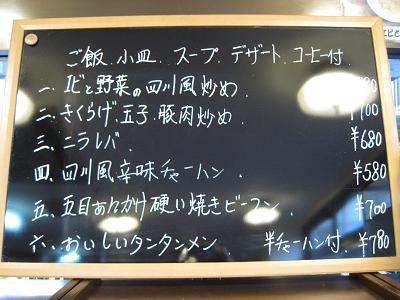 ご飯.小皿.スープ.デザート.コーヒー付.
一、エビと野菜の四川風炒め.
二、きくらげ.玉子.豚肉炒め. ¥700
三、ニラレバ ¥680
四、四川風辛味チャーハン. ¥580
五、五目あんかけ硬い焼きビーフン. ¥700
六、おいしいタンタンメン. 半チャーハン付.¥780